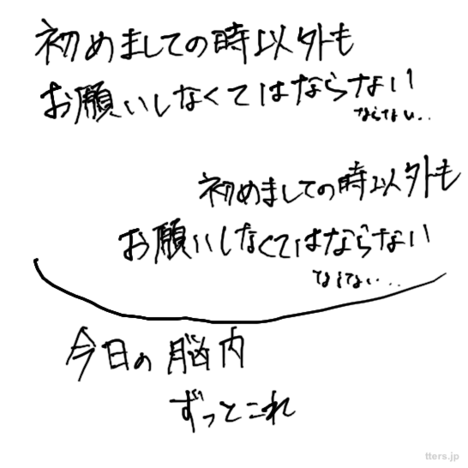 初めましての時以外も
お願いしなくてはならない
ならない..
初めましての時以外も
お願いしなくてはならない
ならない...
今日の脳内
ずっとこれ
tters.jp